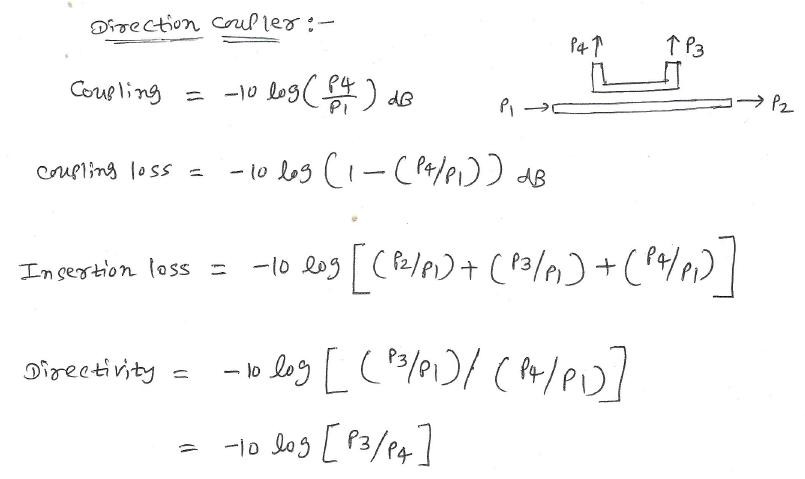 Direction coupler :-
P4 ↑ ↑ P3
Coupling = -10 log(P4/P1) dB
P1 → → P2
coupling loss = -10 log (1 - (P4/P1)) dB
Insertion loss = -10 log [(P2/P1) + (P3/P1) + (P4/P1)]
Directivity = -10 log [(P3/P1)/(P4/P1)]
= -10 log [P3/P4]